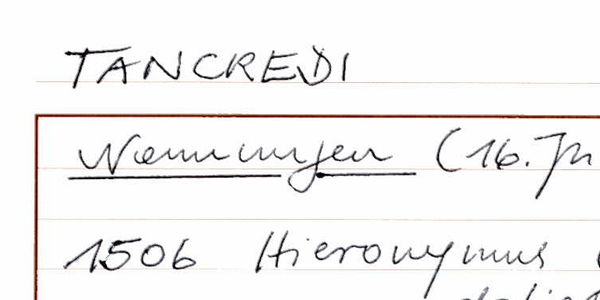 TANCREDI
Nennungen (16. Jh
1506 Hieronymus